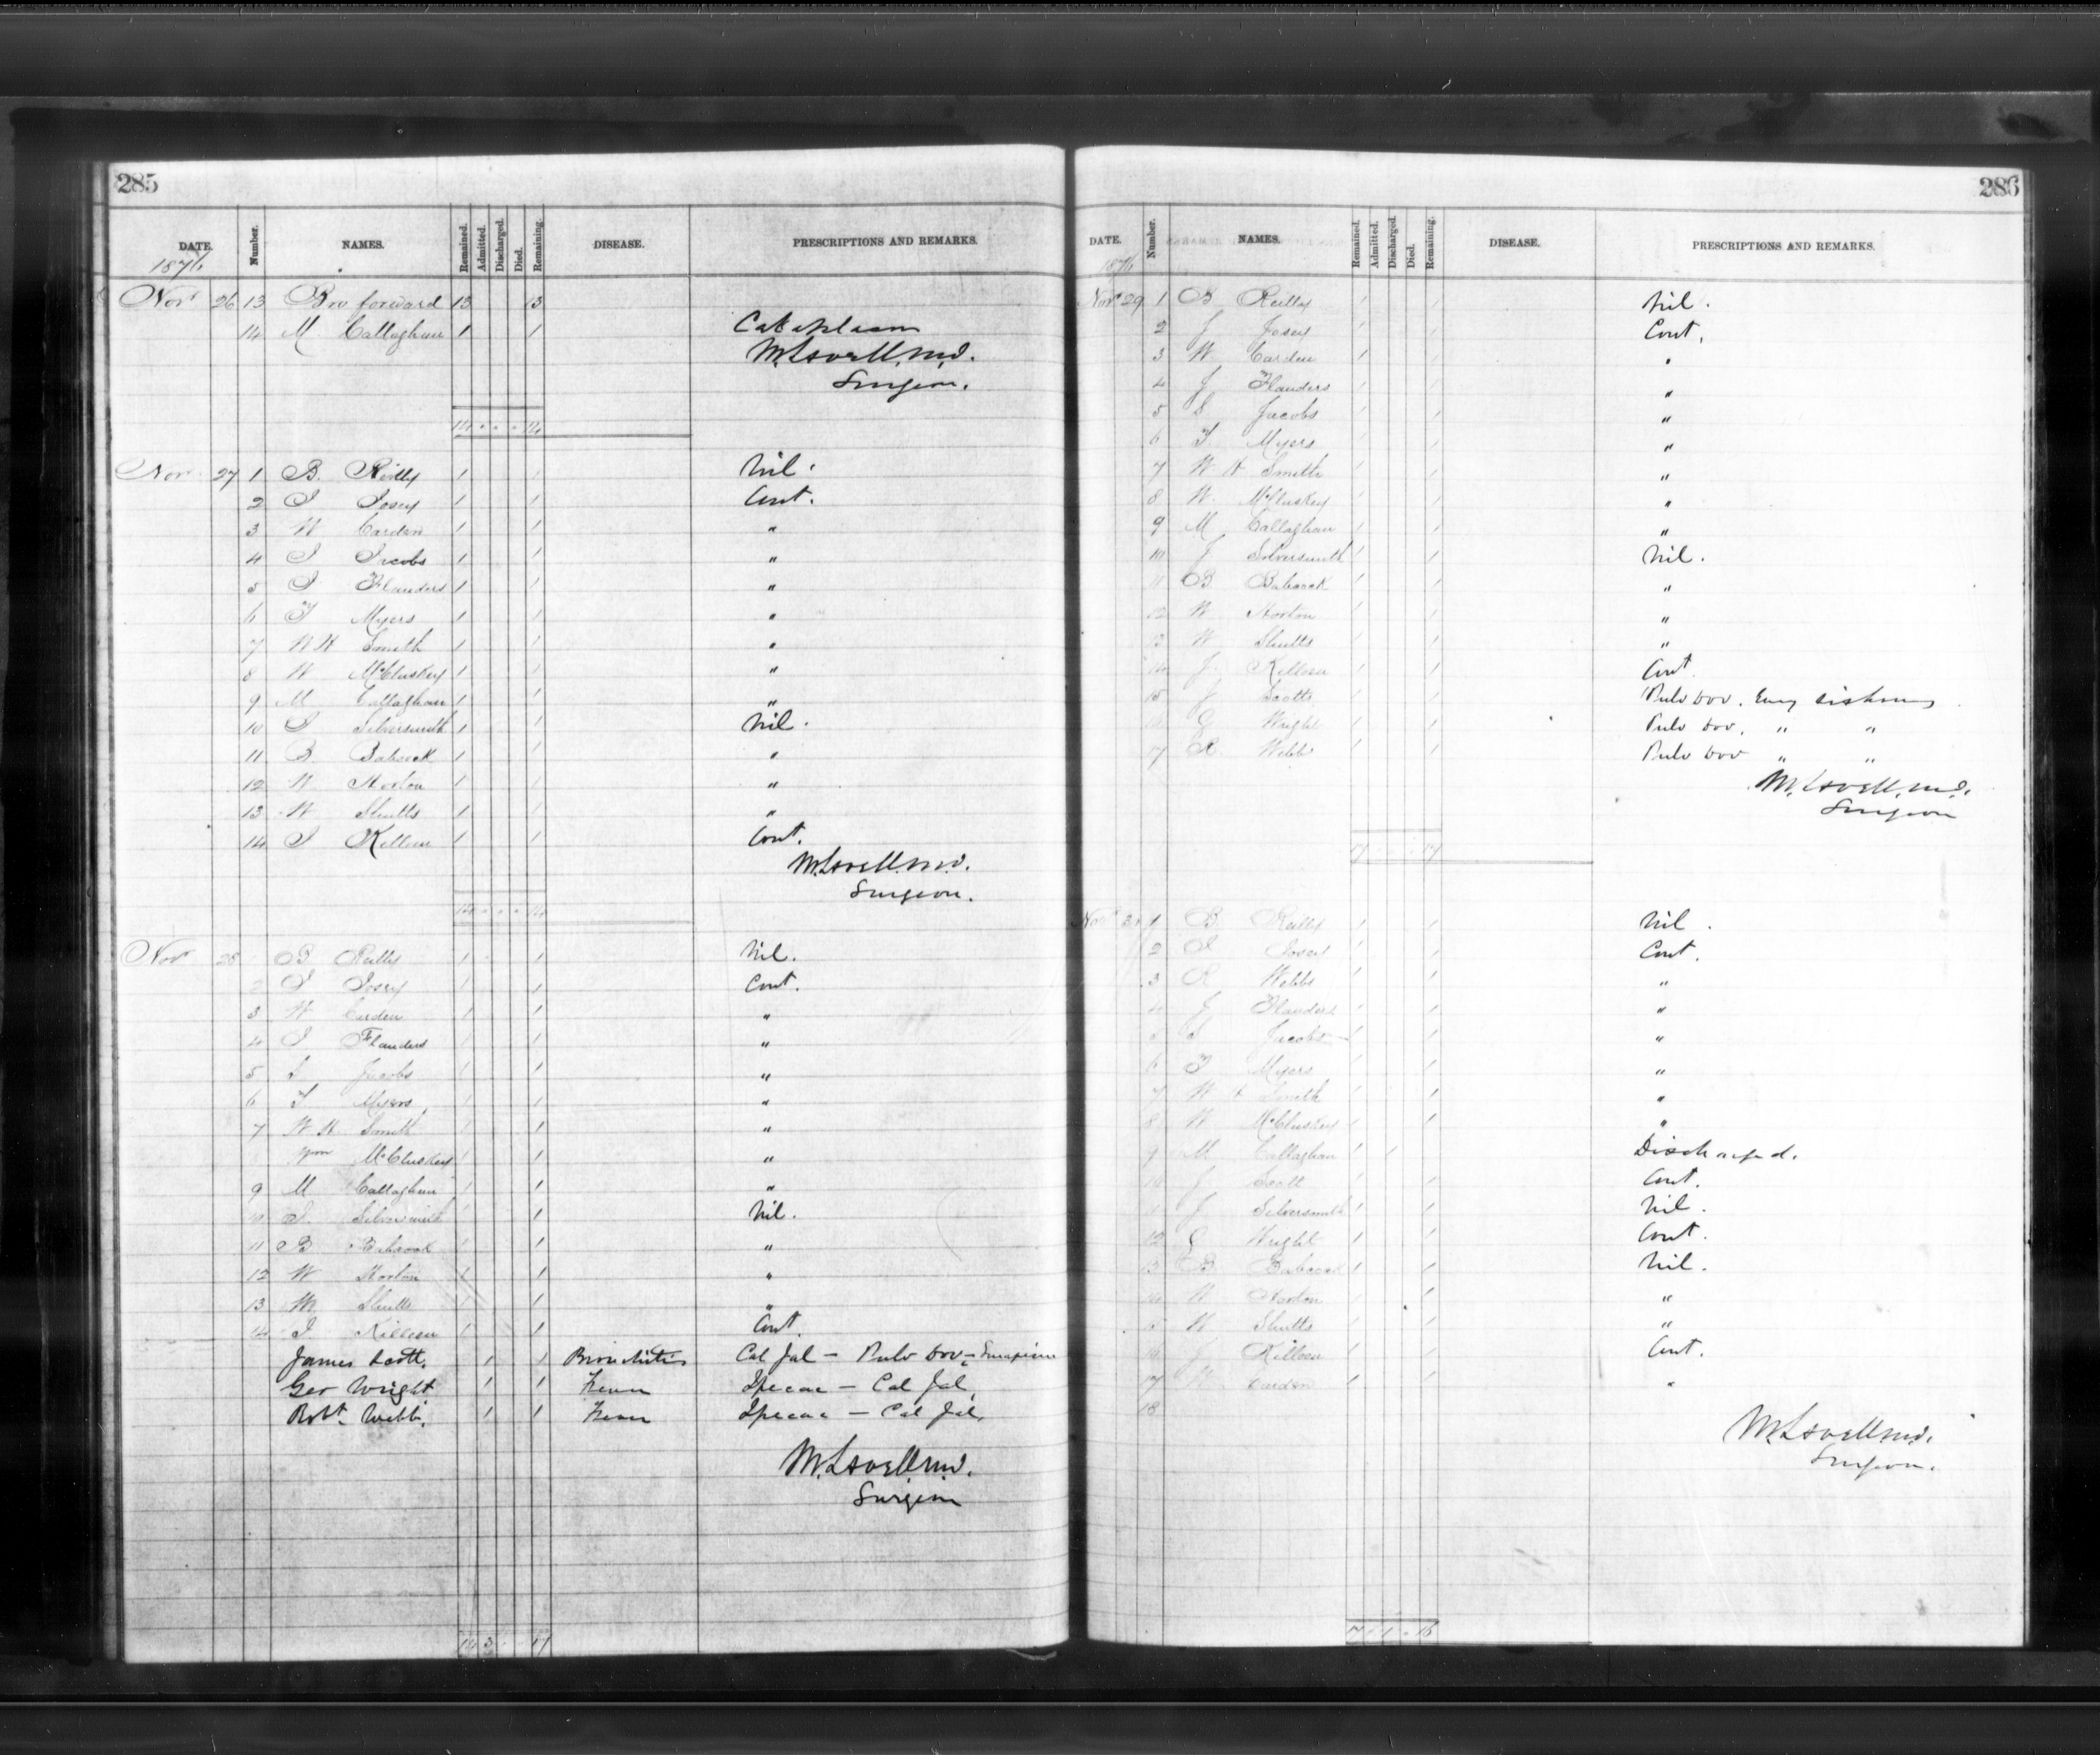 285
DATE. Number. NAMES. Remained. Admitted. Discharged. Died. Remaining. DISEASE. PRESCRIPTIONS AND REMARKS.
1876
Nov 26 13 Bro forward 13 13
14 M Callaghan 1 1 Cataplasm
M. Lavell, M.D.
Surgeon.
14 . . . 14
Nov 27 1 B. Reilly 1 1 Nil.
2 J Josey 1 1 Cont.
3 W Carden 1 1 "
4 J Jacobs 1 1 "
5 J Flanders 1 1 "
6 T Myers 1 1 "
7 W H Smith 1 1 "
8 W McCluskey 1 1 "
9 M Callaghan 1 1 "
10 J Silversmith 1 1 Nil.
11 B Babcock 1 1 "
12 W Norton 1 1 "
13 W Shutts 1 1 "
14 J Killeen 1 1 Cont.
M. Lavell. M.D.
Surgeon.
14 . . . 14
Nov 28 B Reilly 1 1 Nil.
2 J Josey 1 1 Cont.
3 W Carden 1 1 "
4 J Flanders 1 1 "
5 S Jacobs 1 1 "
6 T Myers 1 1 "
7 W H Smith 1 1 "
Wm McCluskey 1 1 "
9 M Callaghan 1 1 "
10 J Silversmith 1 1 Nil.
11 B Babcock 1 1 "
12 W Norton 1 1 "
13 W Shutts 1 1 "
14 J Killeen 1 1 Cont.
James Scott. 1 1 Bronchitis Cal Jal — Pulv Dov — Sinapism
Geo Wright 1 1 Fever Ipecac — Cal Jal.
Robt. Webb. 1 1 Fever Ipecac — Cal Jal.
M. Lavell, M.D.
Surgeon
14 3 . . 17
286
DATE. Number. NAMES. Remained. Admitted. Discharged. Died. Remaining. DISEASE. PRESCRIPTIONS AND REMARKS.
1876
Nov 29 1 B Reilly 1 1 Nil.
2 J Josey 1 1 Cont.
3 W Carden 1 1 "
4 J Flanders 1 1 "
5 S Jacobs 1 1 "
6 T Myers 1 1 "
7 W H Smith 1 1 "
8 W. McCluskey 1 1 "
9 M Callaghan 1 1 "
10 J Silversmith 1 1 Nil.
11 B Babcock 1 1 "
12 W Norton 1 1 "
13 W Shutts 1 1 "
14 J. Killeen 1 1 Cont
15 J Scotts 1 1 Pulv Dov.
16 G Wright 1 1 Pulv Dov. " "
17 R Webb 1 1 Pulv Dov " "
M. Lavell, M.D.
Surgeon
17 . . . 17
Nov 30 1 B Reilly 1 1 Nil.
2 J Josey 1 1 Cont.
3 R Webbs 1 1 "
4 J Flanders 1 1 "
5 S Jacobs 1 1 "
6 T Myers 1 1 "
7 W H Smith 1 1 "
8 W McCluskey 1 1 "
9 M Callaghan 1 1 Discharged.
10 J Scott 1 1 Cont.
11 J Silversmith 1 1 Nil.
12 G Wright 1 1 Cont.
13 B Babcock 1 1 Nil.
14 W Norton 1 1 "
15 W Shutts 1 1 "
16 J Killeen 1 1 Cont.
17 W Carden 1 1 "
18
M. Lavell, M.D.
Surgeon.
17 . 1 . 16